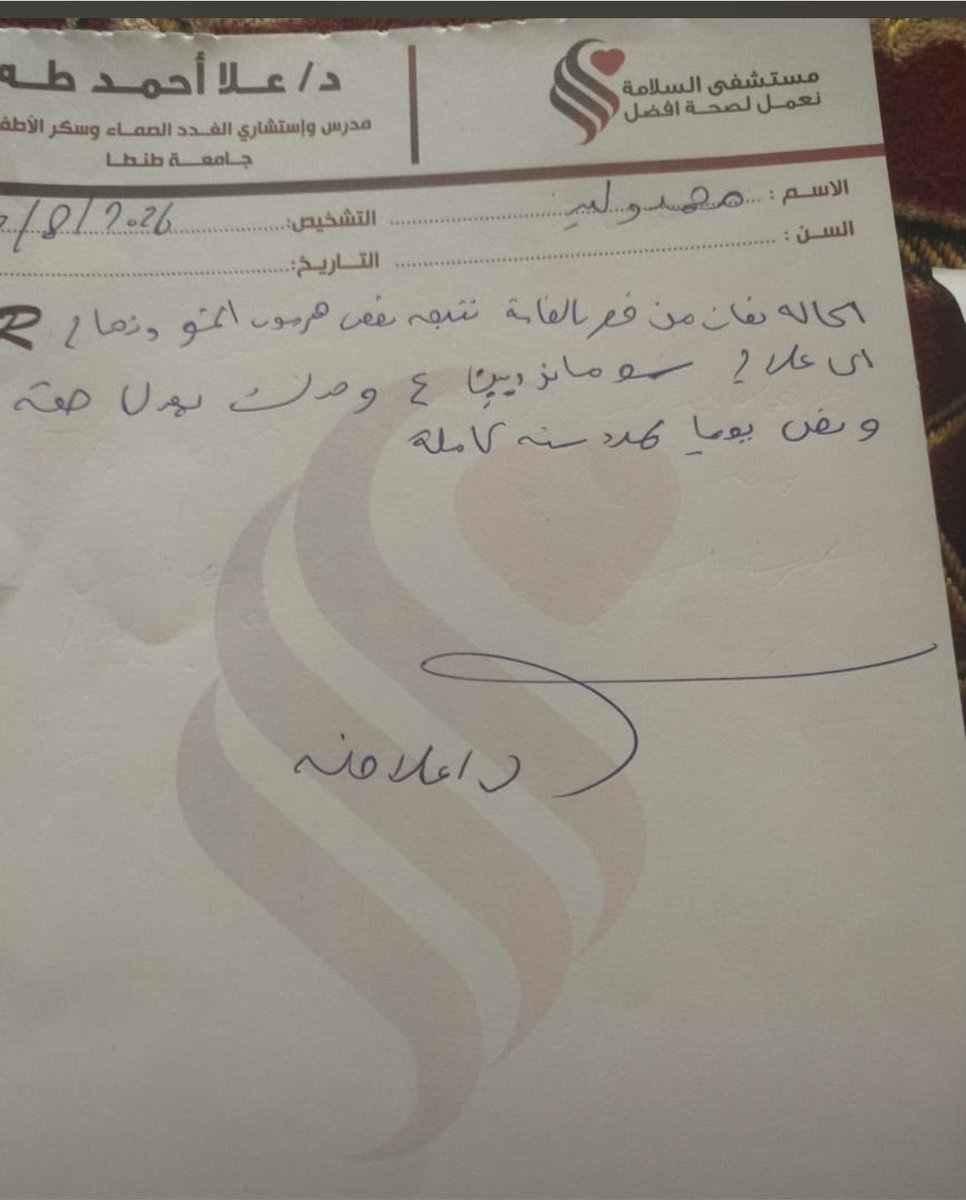 مستشفى السلامة
نعمل لصحة افضل
د/ علا أحمد طه
مدرس وإستشاري الغدد الصماء وسكر الأطف
جامعة طنطا
الاسم : محمد وليد
التشخيص: /8/2026
السن :
التاريخ:
الحاله تعانى من قصر بالقامة نتيجه نقص هرمون النمو وتحتاج R
الى علاج 4 وحدات بمعدل حقنه
يوميا لمدد سنه كاملة
د/علا